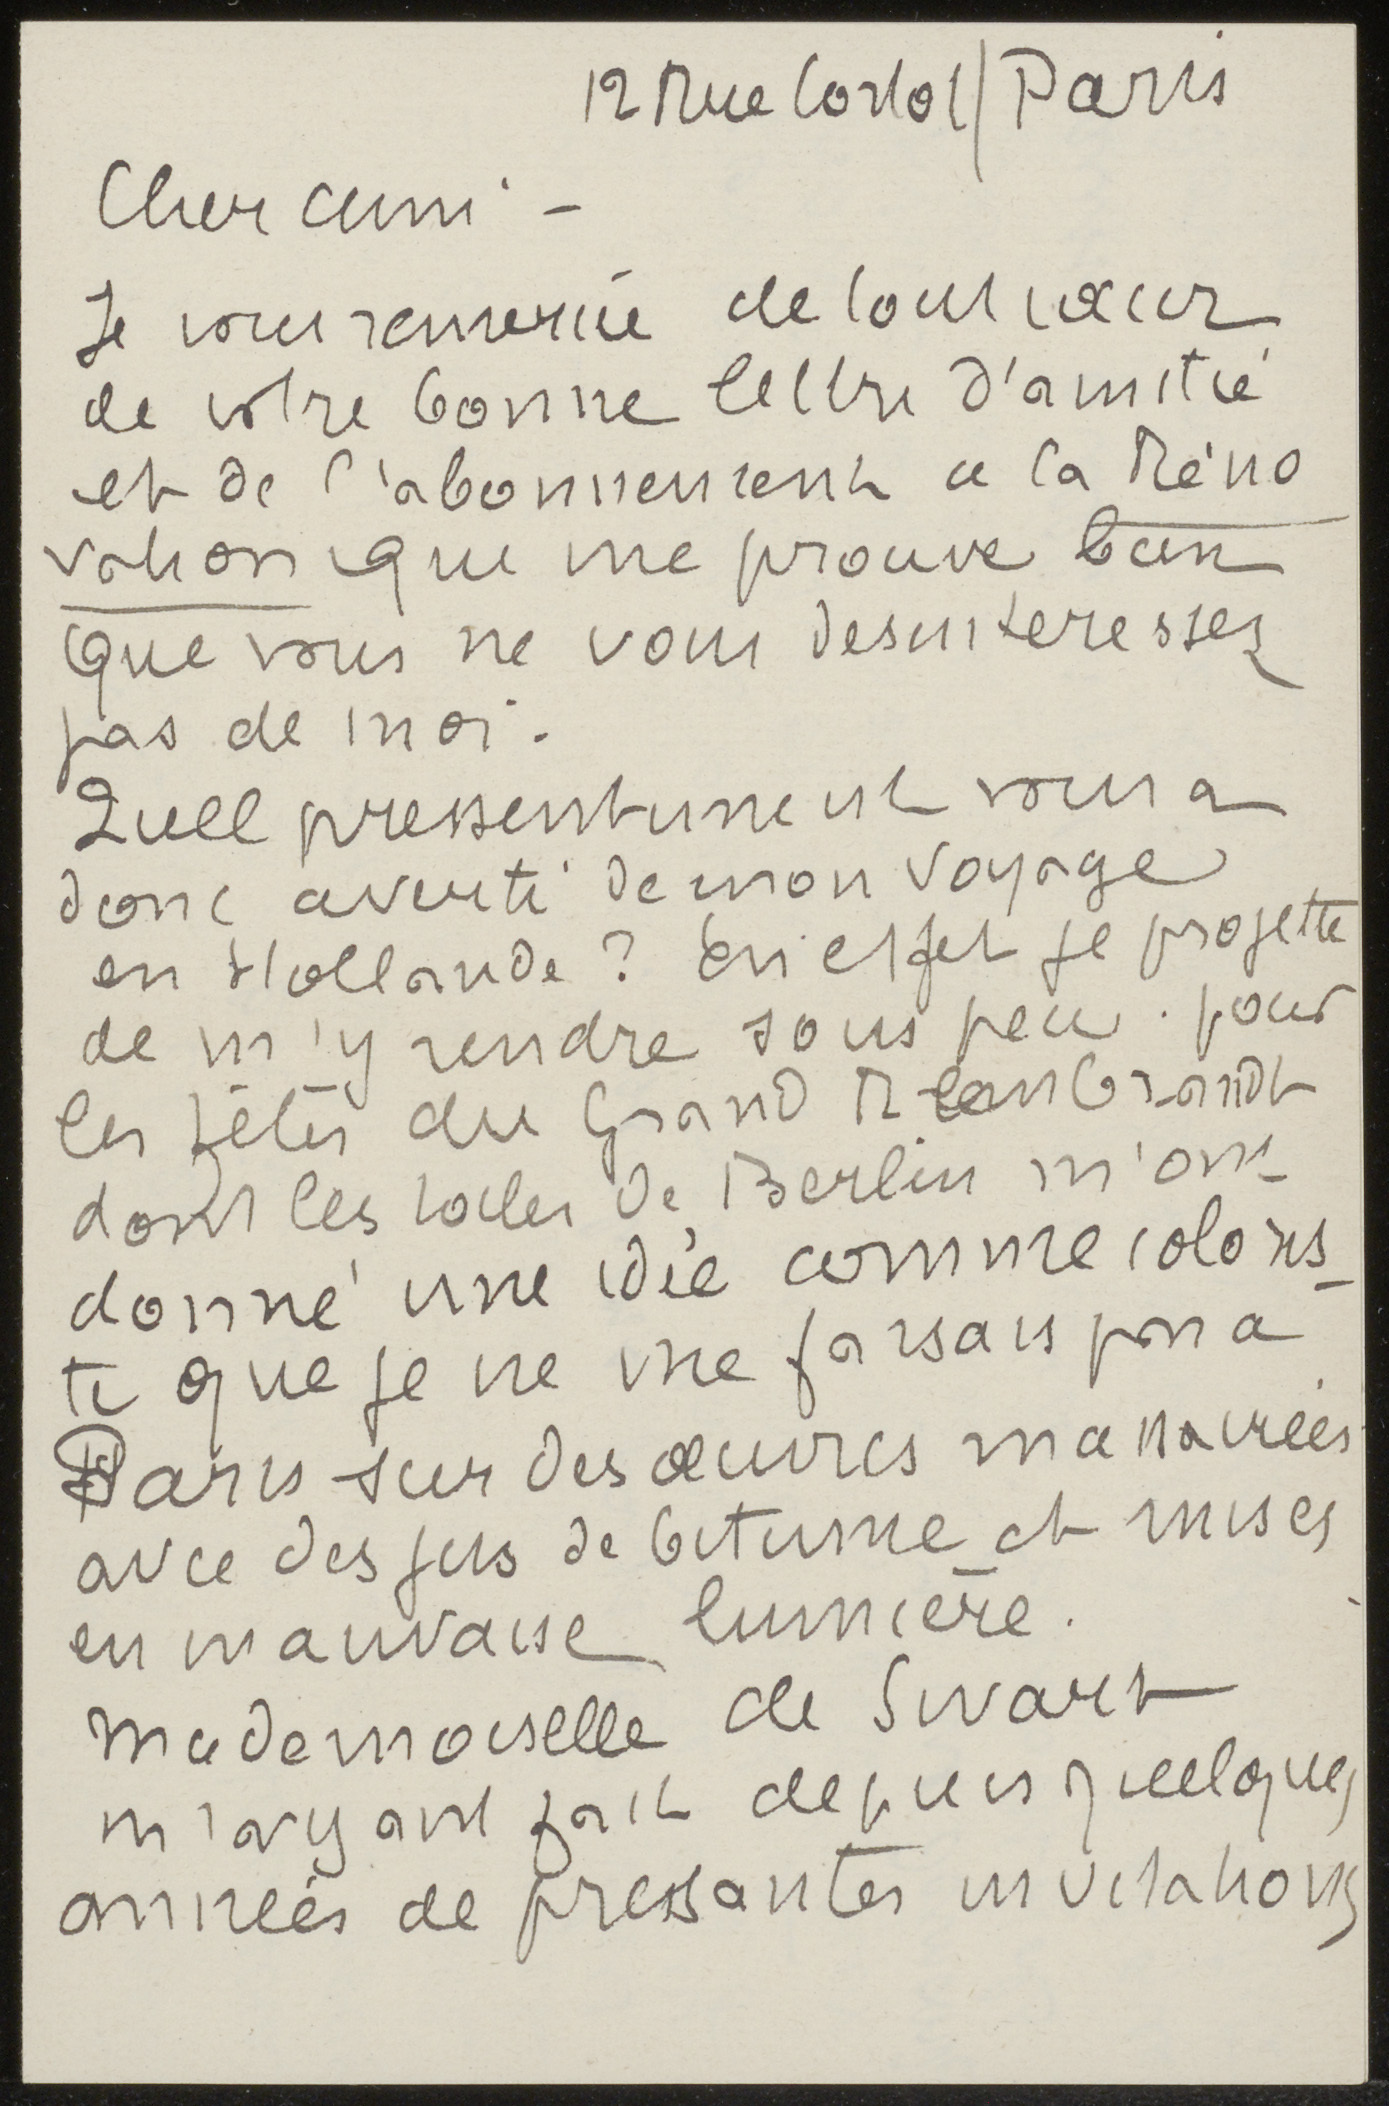 12 Rue Cortot / Paris
Cher ami –
Je vous remercie de tout cœur
de votre bonne lettre d'amitié
et de l'abonnement a la Réno
vation que me prouve bien
que vous ne vous desinteressez
pas de moi.
Quell pressentiment vous a
donc averti de mon voyage
en Hollande ? En effet je projette
de m'y rendre sous peu. pour
les fêtes du Grand Rembrandt
dont les toiles de Berlin m'ont
donné une idée comme coloris-
te que je ne me faisais pas a
Paris sur des œuvres massacrées
avec des jus de bitume et mises
en mauvaise lumière.
Mademoiselle de Swart
m'ayant fait depuis quelques
années de pressantes invitations